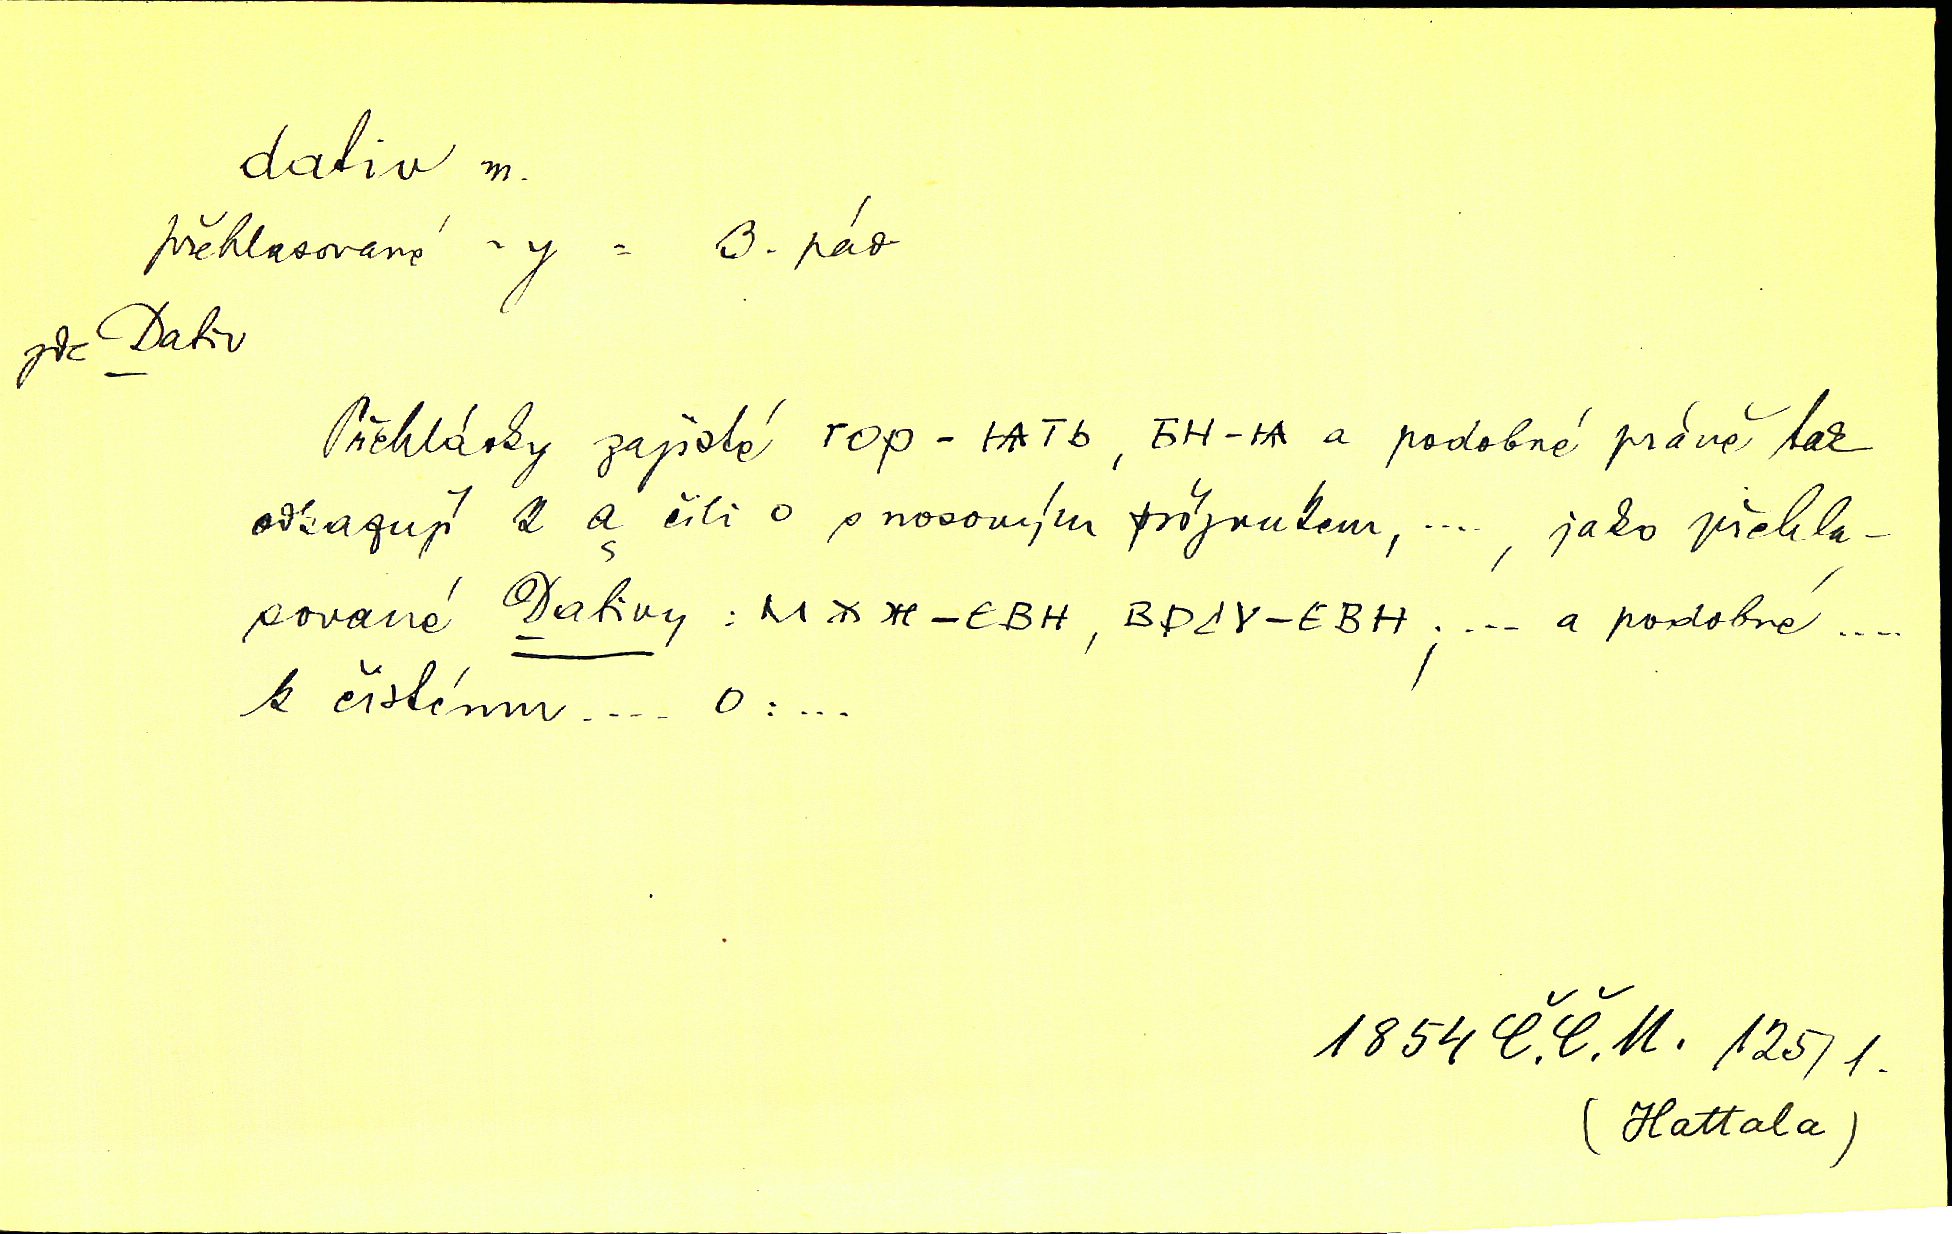 dativ m.
přehlasované -y = 3. pád
zde Dativ
Přehlásky zajisté гор-ѬТЬ, БН-Ѭ a podobné právě tak
odkazují k ą čili o s nosovým přízvukem, ...., jako přehla-
sované Dativy : МѪЖ-ЄВН, ВРАЧ-ЄВН, ... a podobné ....
k čistému .... o : ...
1854 Č.Č.M. 125/1.
(Hattala)